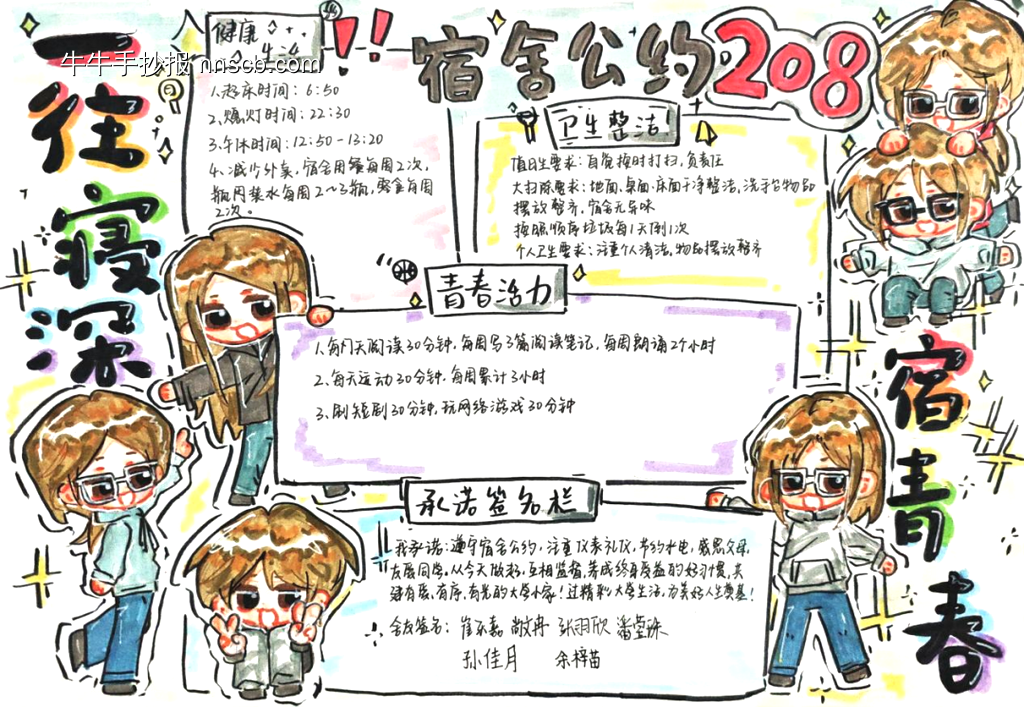 宿舍公约208
一往寝深
宿青春
牛牛手抄报 nnscb.com
健康
生活
1.起床时间：6:50
2.熄灯时间：22:30
3.午休时间：12:50-13:20
4.减少外卖，宿舍用餐每周2次，
瓶装水每周2~3瓶，零食每周
2次。
卫生整洁！
值日生要求：自觉按时打扫，负责任
大扫除要求：地面、桌面、床面干净整洁，洗手台物品
摆放整齐，宿舍无异味
垃圾每1天倒1次
个人卫生要求：注重个人清洁，物品摆放整齐
青春活力
1.每天阅读30分钟，每周写3篇阅读笔记，每周朗诵2个小时
2.每天运动30分钟，每周累计3小时
3.刷短剧30分钟，玩网络游戏30分钟
承诺签名栏
我承诺：遵守宿舍公约，注重仪表礼仪，节约水电，感恩父母，
友爱同学。从今天做起，互相监督，养成终身受益的好习惯，共
建有爱、有序、有光的大学小家！过精彩大学生活，为美好人生奠基！
舍友签名：
孙佳月 余梓苗